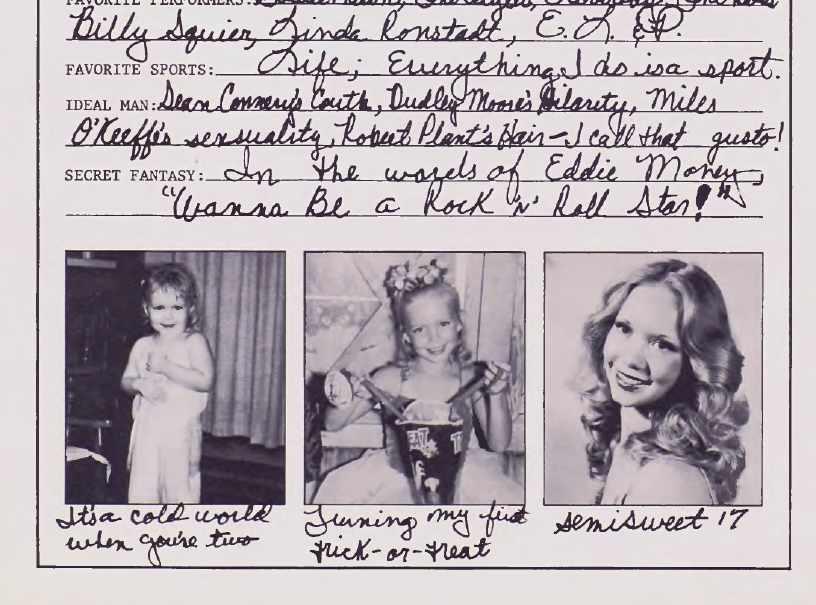 FAVORITE PERFORMERS:
Billy Squier, Linda Ronstadt, E.L. & P.
FAVORITE SPORTS: Life; Everything I do is a sport.
IDEAL MAN: Sean Connery's Couth, Dudley Moore's Hilarity, Miles
O'Keeffe's sensuality, Robert Plant's Hair—I call that gusto!
SECRET FANTASY: In the words of Eddie Money,
"Wanna Be a Rock 'n' Roll Star!"
TREAT T
It's a cold world
when you're two
Turning my first
trick-or-treat
semisweet 17